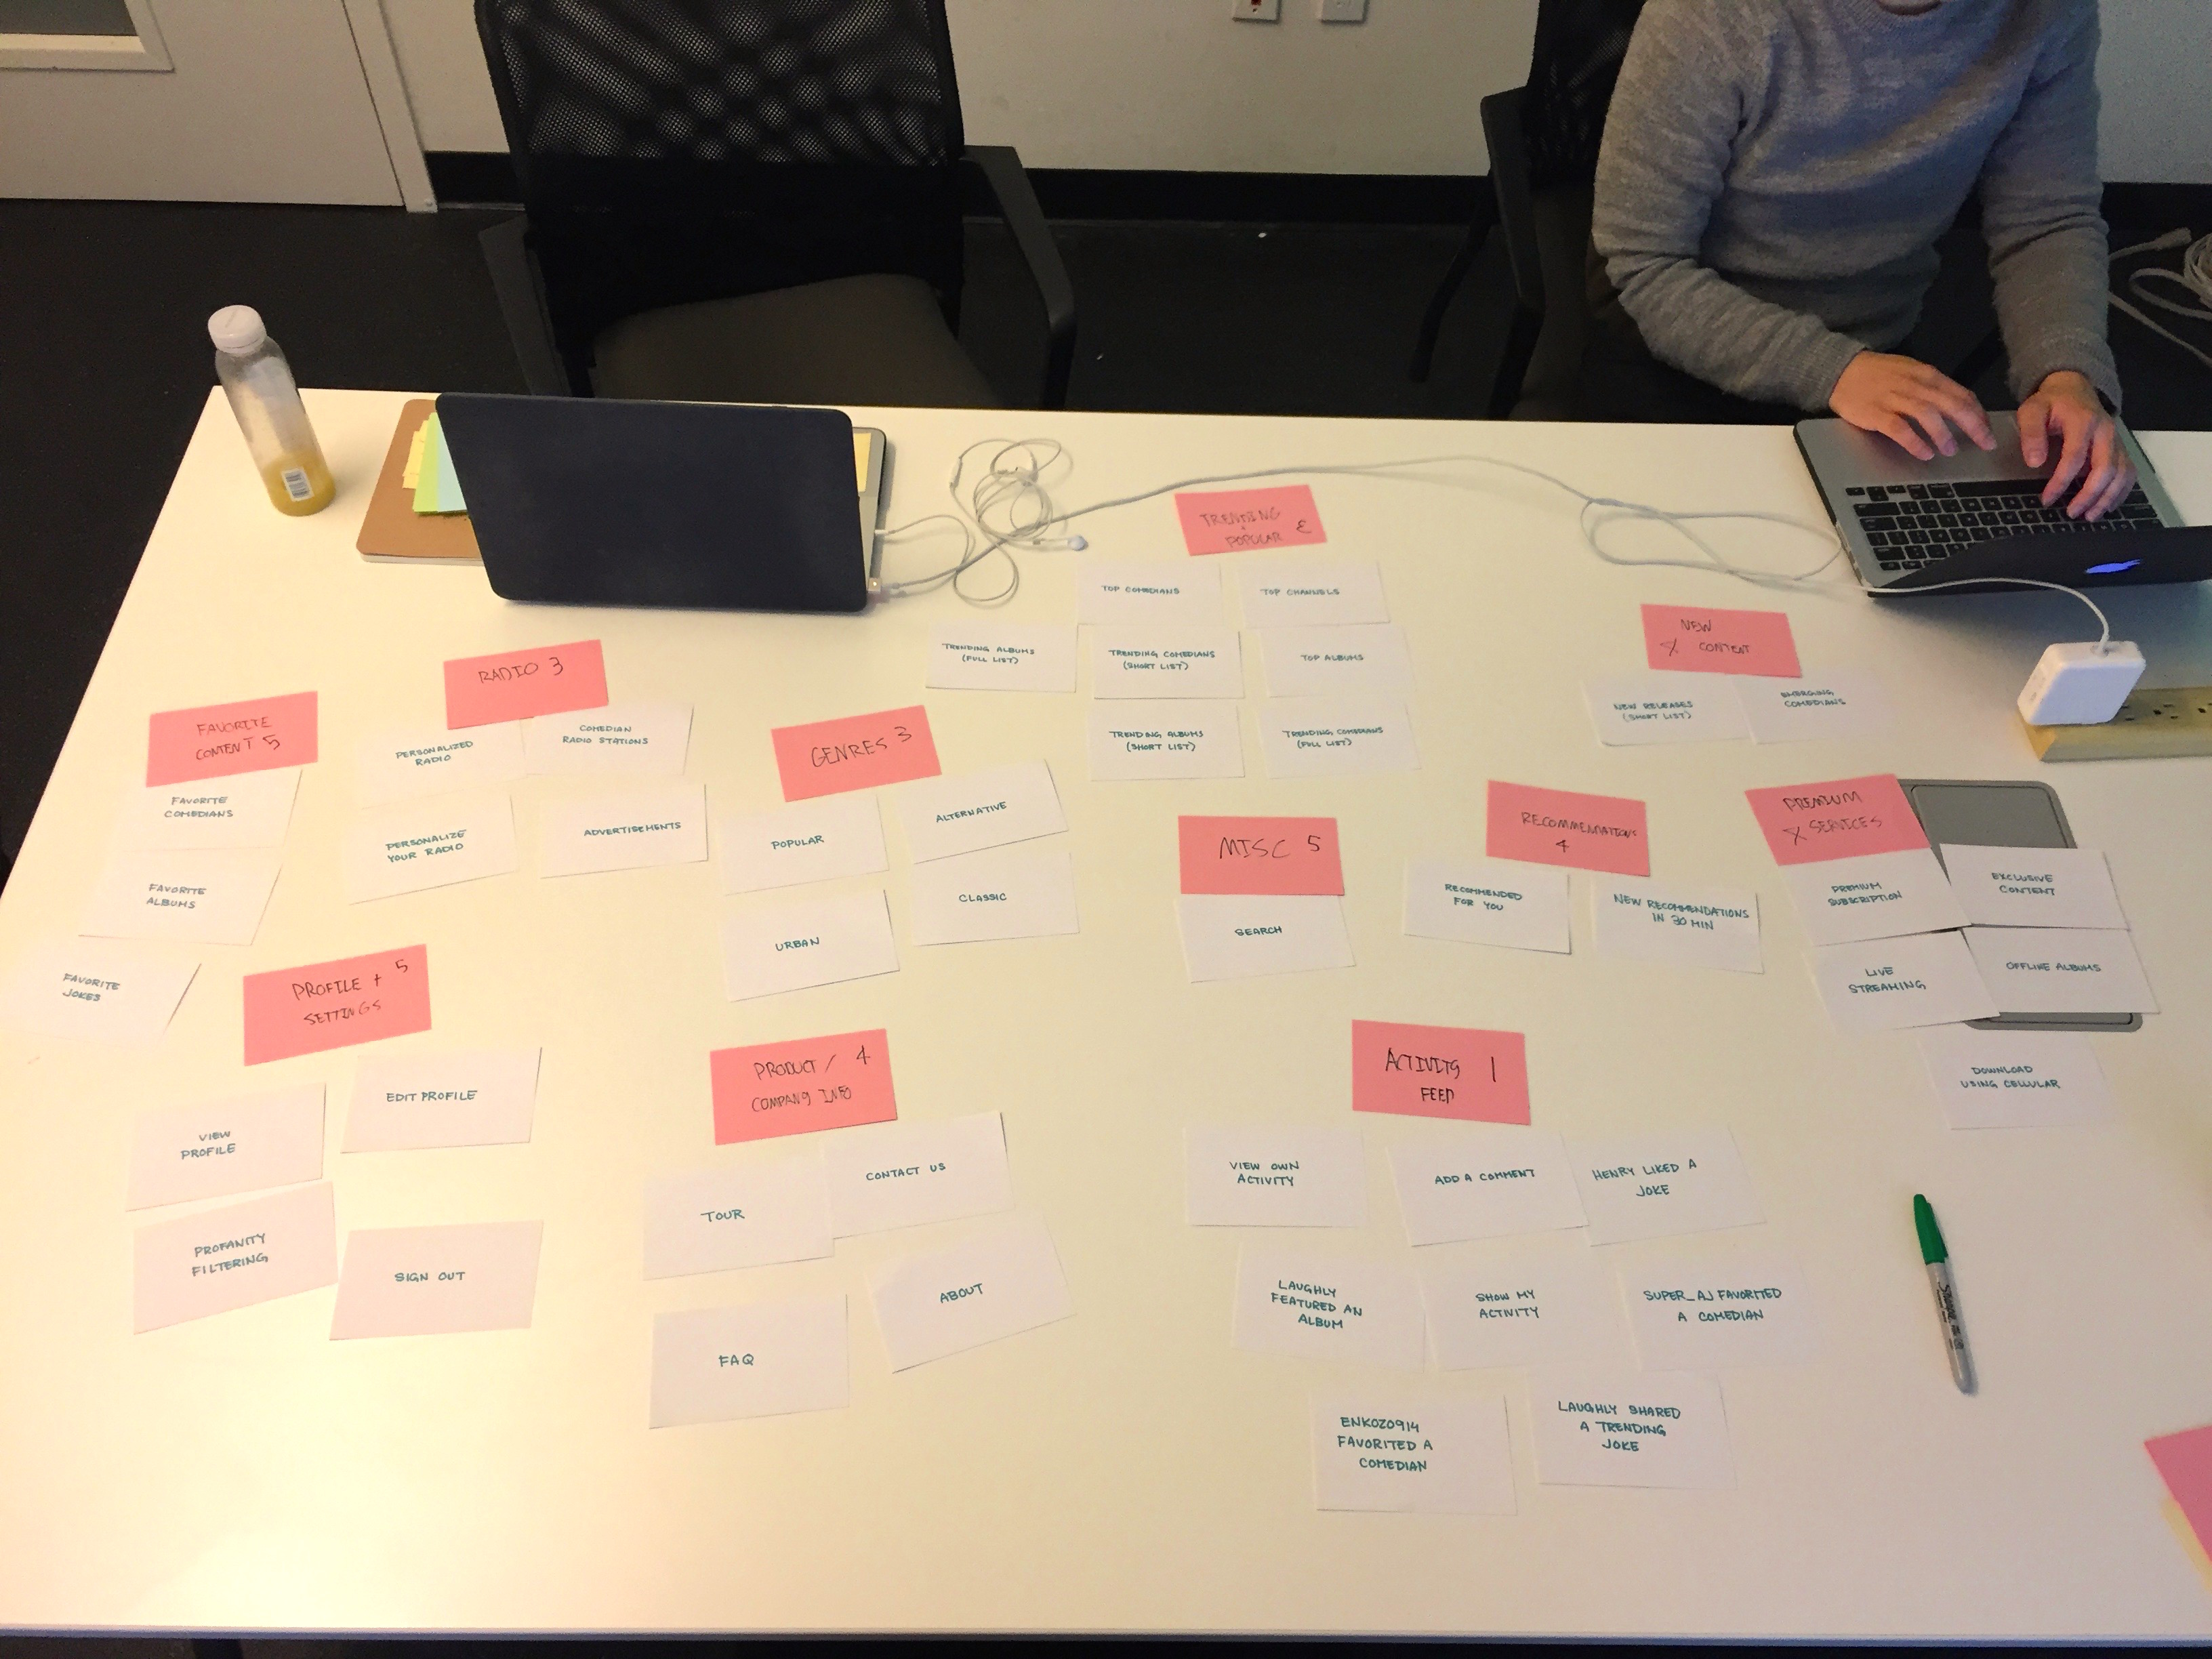 TRENDING 3
+
POPULAR
TOP COMEDIANS
TOP CHANNELS
TRENDING ALBUMS
(FULL LIST)
TRENDING COMEDIANS
(SHORT LIST)
TOP ALBUMS
TRENDING ALBUMS
(SHORT LIST)
TRENDING COMEDIANS
(FULL LIST)
NEW
CONTENT
NEW RELEASES
(SHORT LIST)
EMERGING
COMEDIANS
RADIO 3
PERSONALIZED
RADIO
COMEDIAN
RADIO STATIONS
PERSONALIZE
YOUR RADIO
ADVERTISEMENTS
FAVORITE
CONTENT 5
FAVORITE
COMEDIANS
FAVORITE
ALBUMS
FAVORITE
JOKES
GENRES 3
POPULAR
ALTERNATIVE
URBAN
CLASSIC
MISC 5
SEARCH
RECOMMENDATIONS
4
RECOMMENDED
FOR YOU
NEW RECOMMENDATIONS
IN 30 MIN
PREMIUM
X SERVICES
PREMIUM
SUBSCRIPTION
EXCLUSIVE
CONTENT
LIVE
STREAMING
OFFLINE ALBUMS
DOWNLOAD
USING CELLULAR
PROFILE + 5
SETTINGS
VIEW
PROFILE
EDIT PROFILE
PROFANITY
FILTERING
SIGN OUT
PRODUCT / 4
COMPANY INFO
TOUR
CONTACT US
FAQ
ABOUT
ACTIVITY 1
FEED
VIEW OWN
ACTIVITY
ADD A COMMENT
HENRY LIKED A
JOKE
LAUGHLY
FEATURED AN
ALBUM
SHOW MY
ACTIVITY
SUPER_AJ FAVORITED
A COMEDIAN
ENKOZ0914
FAVORITED A
COMEDIAN
LAUGHLY SHARED
A TRENDING
JOKE
Sharpie